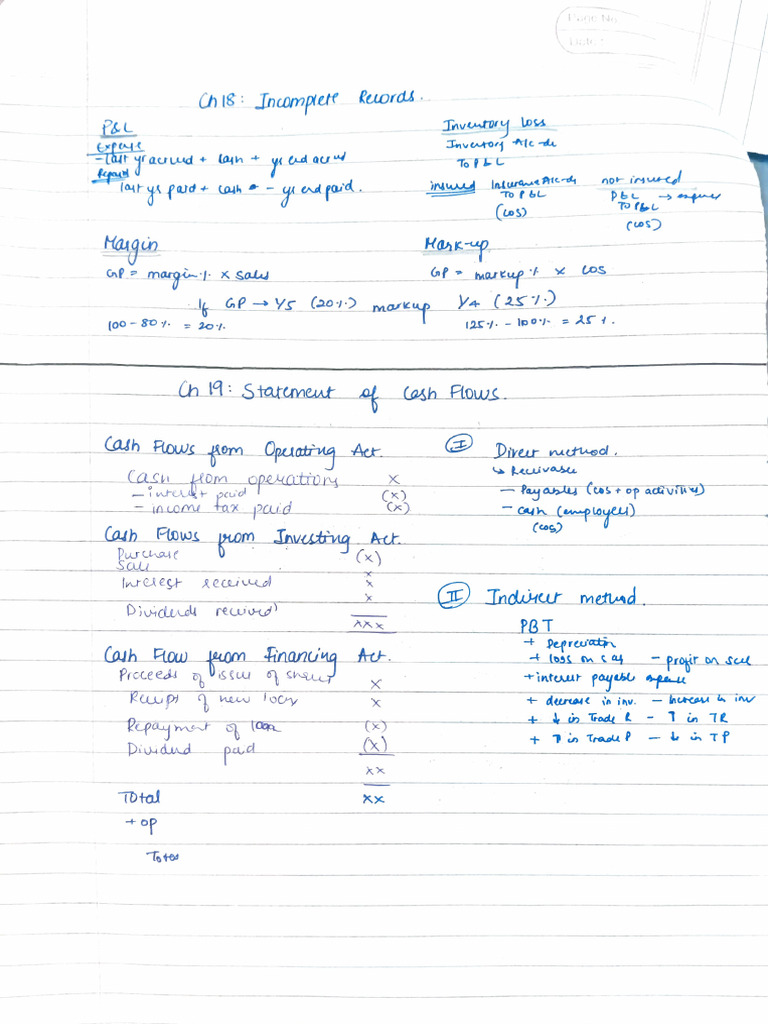 Page No.
Date :
Ch 18: Incomplete Records.
P&L
Expense
- last yr accrued + cash + yr end accrued
Prepaid
last yr paid + cash - yr end paid.
Inventory Loss
Inventory A/c - dr
To P&L
insured
Insurance A/c - dr
To P&L
(COS)
not insured
P&L → expense
To P&L
(COS)
Margin
GP = margin % × sales
Mark-up
GP = markup % × COS
If GP → 1/5 (20%) markup 1/4 (25%)
100 - 80% = 20%
125% - 100% = 25%.
Ch 19: Statement of Cash Flows.
Cash Flows from Operating Act.
Cash from operations x
- interest paid (x)
- income tax paid (x)
Cash Flows from Investing Act.
Purchase (x)
Sale x
Interest received x
Dividends received x
xxx
Cash Flow from Financing Act.
Proceeds of issue of shares x
Receipt of new loan x
Repayment of loan (x)
Dividend paid (x)
xx
Total xx
+ op
Total
I Direct method.
↳ Receivable
- Payables (COS + op activities)
- cash (employees)
(COS)
II Indirect method.
PBT
+ Depreciation
+ loss on s as - profit on sale
+ interest payable expense
+ decrease in inv. - Increase in inv
+ ↓ in Trade R - ↑ in TR
+ ↑ in Trade P - ↓ in TP